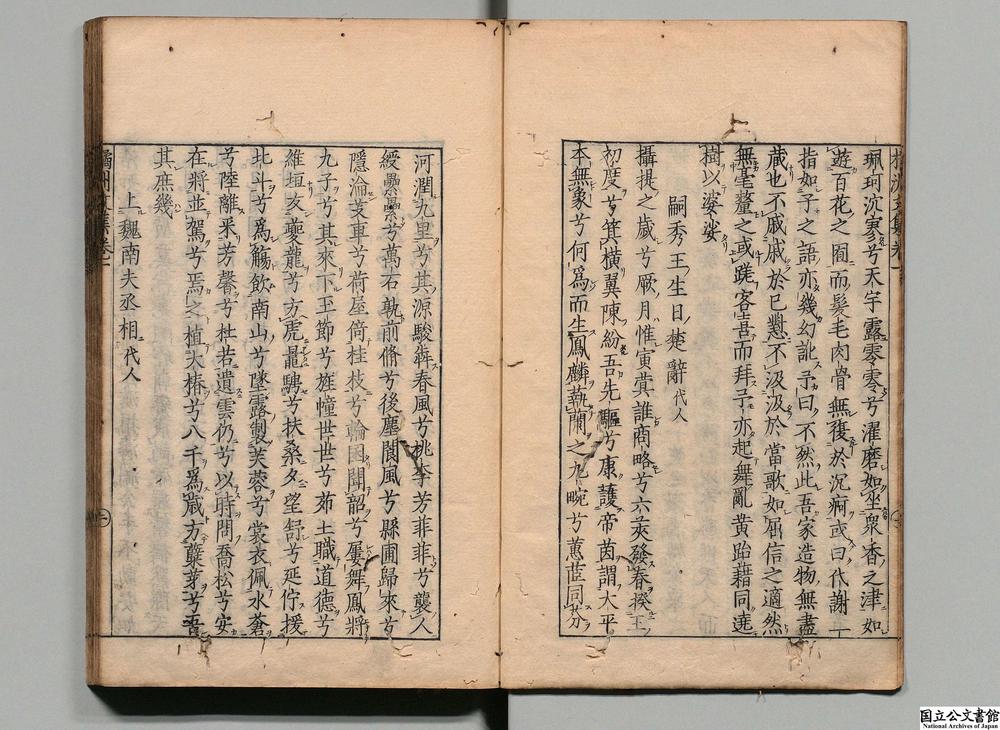 珮珂沈寥兮天宇露零零兮濯磨如坐衆香之津如
遊百花之囿而髮毛肉骨無復於沉痾或曰代謝一
指如子之語亦幾幻訛予曰不然此吾家造物無盡
蔵也不戚戚於已愆不汲汲於當歌如屈信之適然
無毫釐之或蹉客喜而拜予亦起舞亂黄跆藉同遶
樹以婆娑
嗣秀王生日楚辭代人
攝提之歳兮厥月惟寅蓂誰商略兮六莢發春揆王
初度兮箕横翼陳紛吾先驅兮康護帝茵謂大平
本無象兮何為而生鳳麟蓺蘭之九畹兮蕙茝同芬
河潤九里兮其源駿犇春風兮桃李芳菲菲兮襲人
綬纍纍兮萬石孰前脩兮後塵閬風兮縣圃歸來兮
隱淪芰車兮荷屋倚桂枝兮輪囷聞韶兮屢舞鳳將
九子兮其來下玉節兮旌幢世世兮茆土職道德兮
維垣友夔龍兮方虎鼂騁兮扶桑夕望舒兮延佇援
北斗兮為觴飲南山兮墜露製芙蓉兮裳衣佩水蒼
兮陸離采芳馨兮杜若遺雲仍兮以時問喬松兮安
在將並駕兮焉之植大椿兮八千為歳方櫱芽兮吾
其庶幾
上魏南夫丞相代人
橘洲文集卷一
国立公文書館
National Archives of Japan